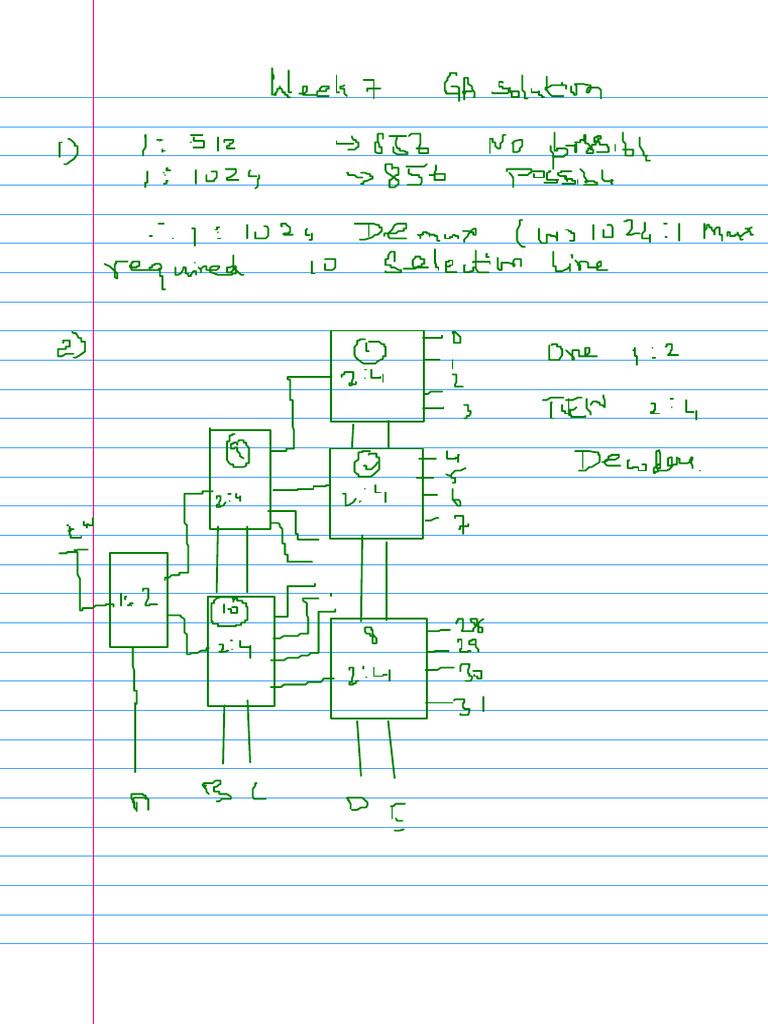 Week 7 GA solution
1) 1: 512 → 856 No possibl
1: 1024 → 856 Possibl
∴ 1: 1024 Demux 1024:1 Mux
required 10 Selection line
2)
① 2:4 0 1 2 3
One 1:2
TEN 2:4
Decoders.
9 2:4
② 2:4 4 5 6 7
1:2
10 2:4
8 2:4 28 29 30 31
A B C D E